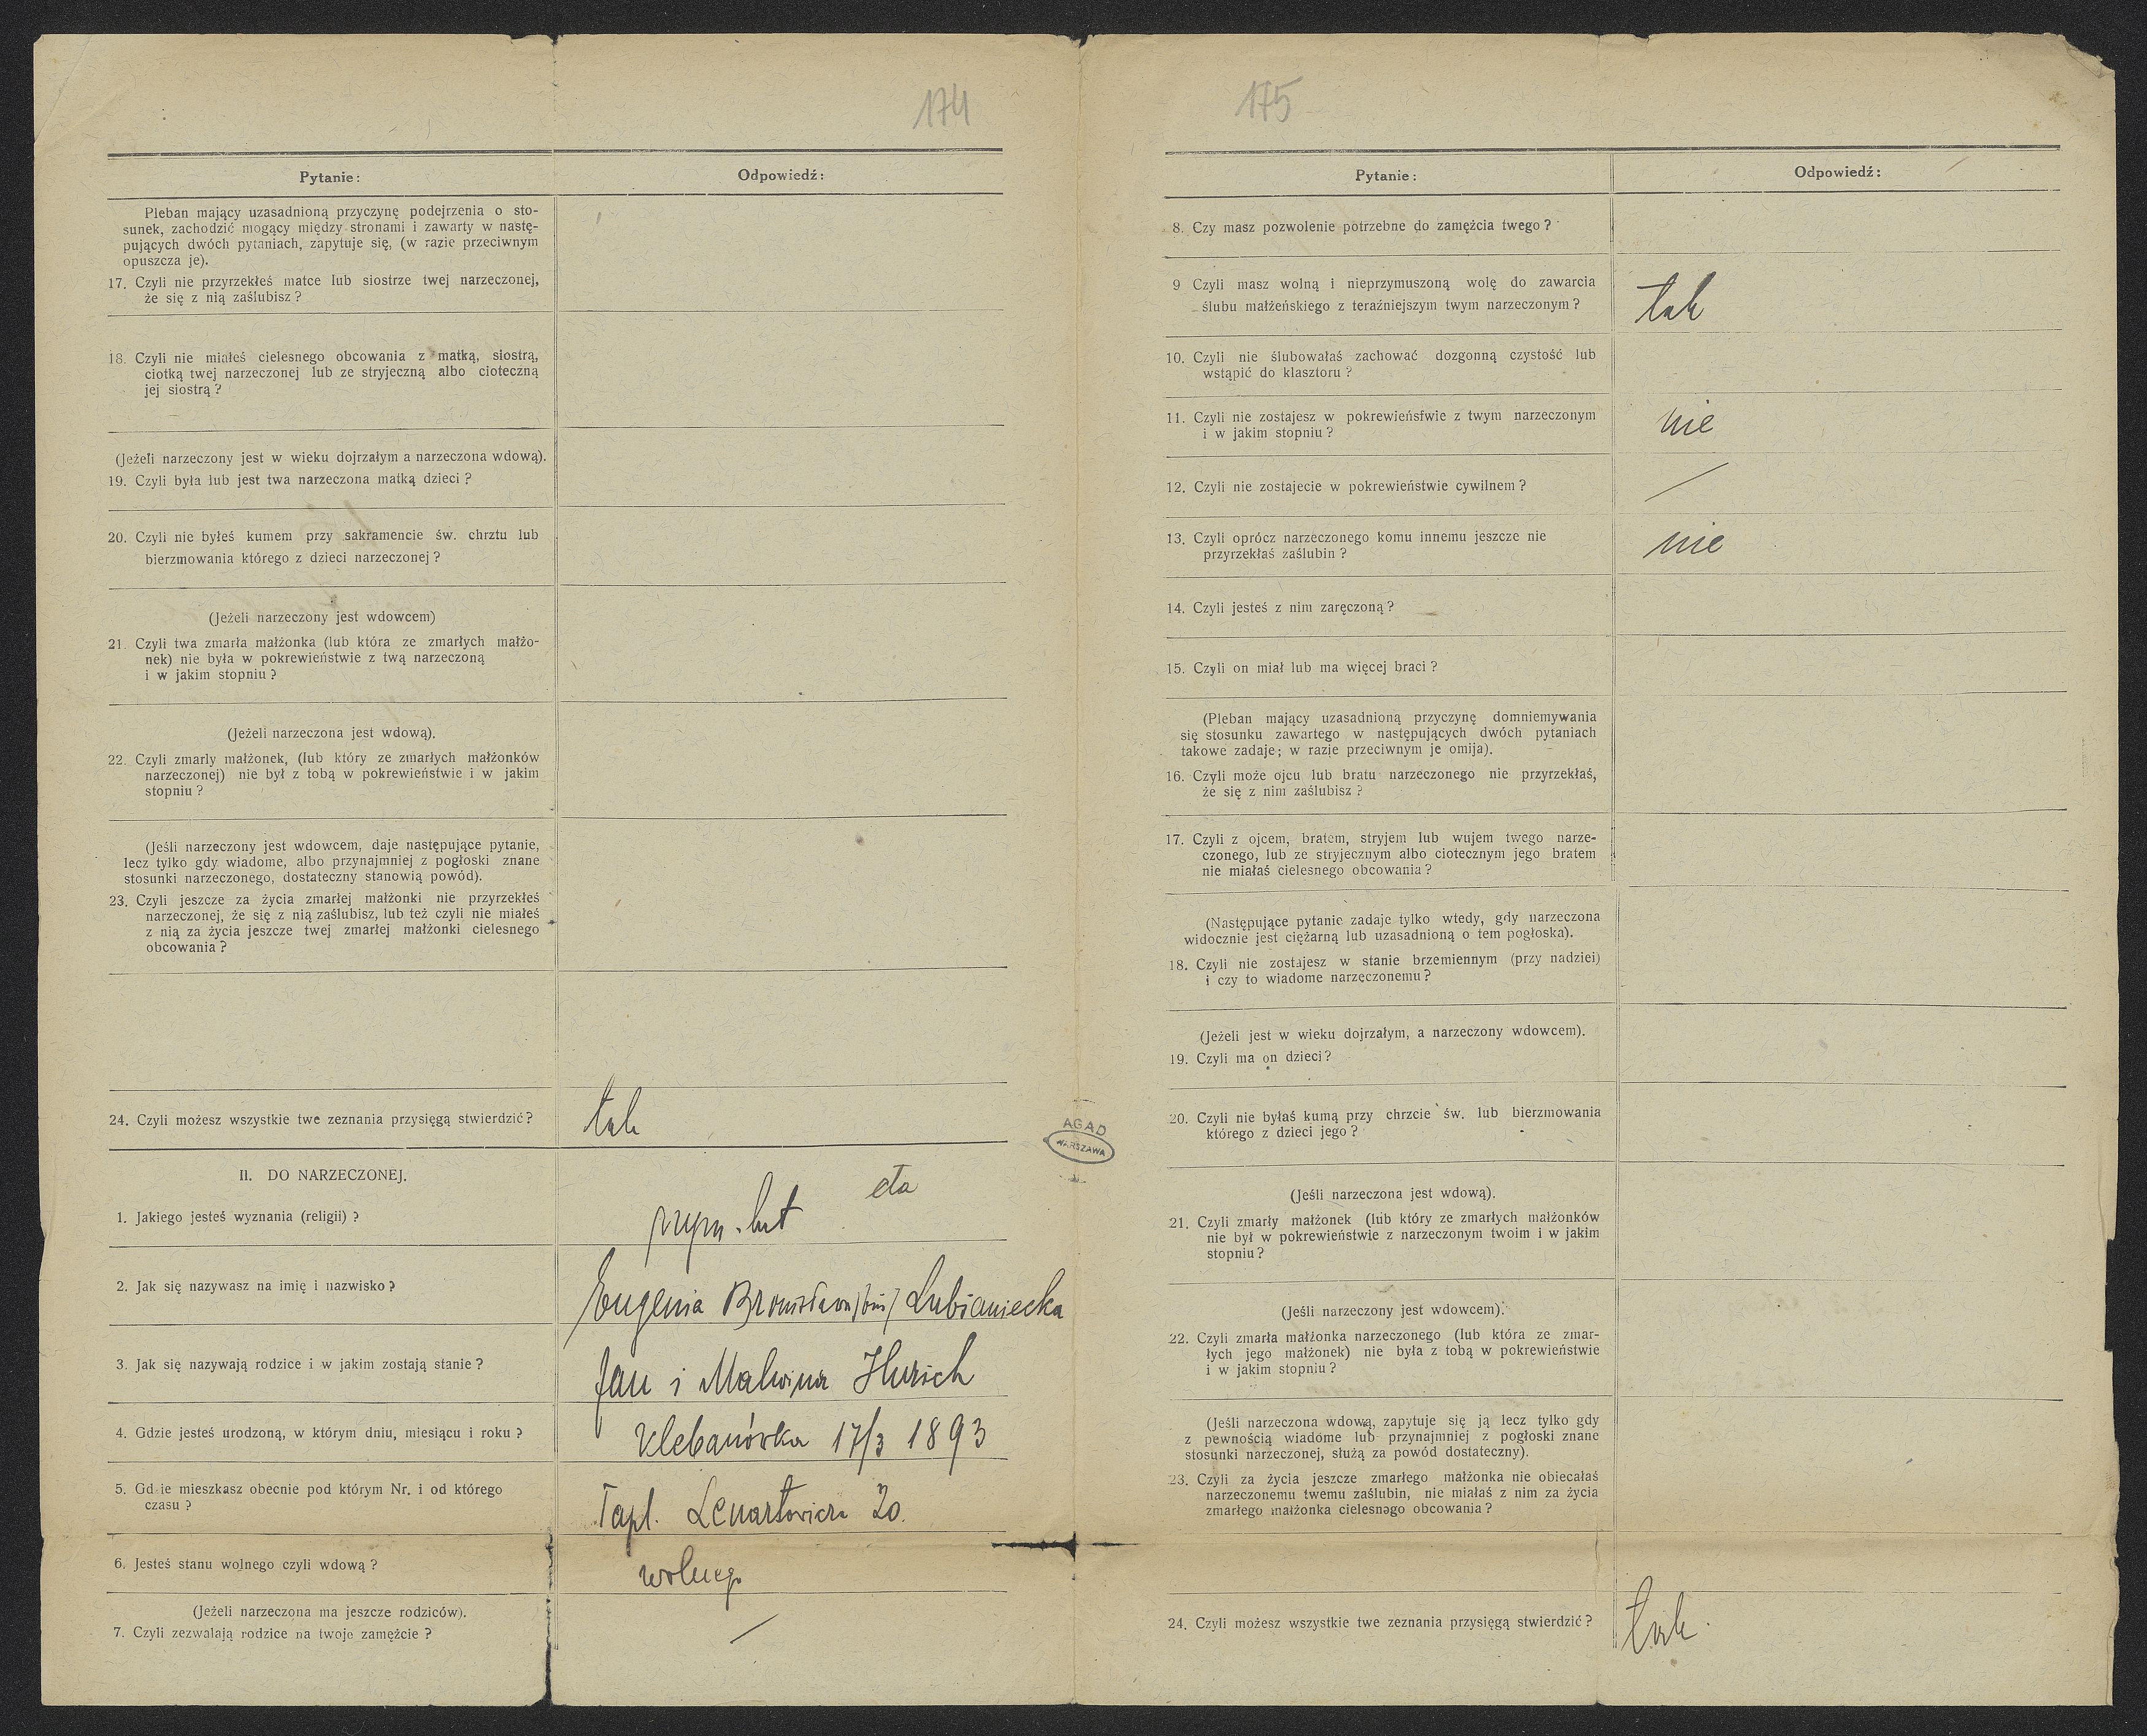 174
Pytanie:
Odpowiedź:
Pleban mający uzasadnioną przyczynę podejrzenia o sto-
sunek, zachodzić mogący między stronami i zawarty w nastę-
pujących dwóch pytaniach, zapytuje się, (w razie przeciwnym
opuszcza je).
17. Czyli nie przyrzekłeś matce lub siostrze twej narzeczonej,
że się z nią zaślubisz?
18. Czyli nie miałeś cielesnego obcowania z matką, siostrą,
ciotką twej narzeczonej lub ze stryjeczną albo cioteczną
jej siostrą?
(Jeżeli narzeczony jest w wieku dojrzałym a narzeczona wdową).
19. Czyli była lub jest twa narzeczona matką dzieci?
20. Czyli nie byłeś kumem przy sakramencie św. chrztu lub
bierzmowania którego z dzieci narzeczonej?
(Jeżeli narzeczony jest wdowcem)
21. Czyli twa zmarła małżonka (lub która ze zmarłych małżo-
nek) nie była w pokrewieństwie z twą narzeczoną
i w jakim stopniu?
(Jeżeli narzeczona jest wdową).
22. Czyli zmarly małżonek, (lub który ze zmarłych małżonków
narzeczonej) nie był z tobą w pokrewieństwie i w jakim
stopniu?
(Jeśli narzeczony jest wdowcem, daje następujące pytanie,
lecz tylko gdy wiadome, albo przynajmniej z pogłoski znane
stosunki narzeczonego, dostateczny stanowią powód).
23. Czyli jeszcze za życia zmarłej małżonki nie przyrzekłeś
narzeczonej, że się z nią zaślubisz, lub też czyli nie miałeś
z nią za życia jeszcze twej zmarłej małżonki cielesnego
obcowania?
24. Czyli możesz wszystkie twe zeznania przysięgą stwierdzić?
tak
II. DO NARZECZONEJ.
1. Jakiego jesteś wyznania (religii)?
rzym. łat
2. Jak się nazywasz na imię i nazwisko?
Eugenia Bronisława Lubianiecka
3. Jak się nazywają rodzice i w jakim zostają stanie?
Jan i Malwina
4. Gdzie jesteś urodzoną, w którym dniu, miesiącu i roku?
Klebanówka 17/3 1893
5. Gdzie mieszkasz obecnie pod którym Nr. i od którego
czasu?
Tapl. Lenartowicza 20.
6. Jesteś stanu wolnego czyli wdową?
wolnego
(Jeżeli narzeczona ma jeszcze rodziców).
7. Czyli zezwalają rodzice na twoje zamężcie?
AGAD
WARSZAWA
175
Pytanie:
Odpowiedź:
8. Czy masz pozwolenie potrzebne do zamężcia twego?
9 Czyli masz wolną i nieprzymuszoną wolę do zawarcia
ślubu małżeńskiego z teraźniejszym twym narzeczonym?
tak
10. Czyli nie ślubowałaś zachować dozgonną czystość lub
wstąpić do klasztoru?
11. Czyli nie zostajesz w pokrewieństwie z twym narzeczonym
i w jakim stopniu?
nie
12. Czyli nie zostajecie w pokrewieństwie cywilnem?
13. Czyli oprócz narzeczonego komu innemu jeszcze nie
przyrzekłaś zaślubin?
nie
14. Czyli jesteś z nim zaręczoną?
15. Czyli on miał lub ma więcej braci?
(Pleban mający uzasadnioną przyczynę domniemywania
się stosunku zawartego w następujących dwóch pytaniach
takowe zadaje; w razie przeciwnym je omija).
16. Czyli może ojcu lub bratu narzeczonego nie przyrzekłaś,
że się z nim zaślubisz?
17. Czyli z ojcem, bratem, stryjem lub wujem twego narze-
czonego, lub ze stryjecznym albo ciotecznym jego bratem
nie miałaś cielesnego obcowania?
(Następujące pytanie zadaje tylko wtedy, gdy narzeczona
widocznie jest ciężarną lub uzasadnioną o tem pogłoska).
18. Czyli nie zostajesz w stanie brzemiennym (przy nadziei)
i czy to wiadome narzeczonemu?
(Jeżeli jest w wieku dojrzałym, a narzeczony wdowcem).
19. Czyli ma on dzieci?
20. Czyli nie byłaś kumą przy chrzcie św. lub bierzmowania
którego z dzieci jego?
(Jeśli narzeczona jest wdową).
21. Czyli zmarły małżonek (lub który ze zmarłych małżonków
nie był w pokrewieństwie z narzeczonym twoim i w jakim
stopniu?
(Jeśli narzeczony jest wdowcem).
22. Czyli zmarła małżonka narzeczonego (lub która ze zmar-
łych jego małżonek) nie była z tobą w pokrewieństwie
i w jakim stopniu?
(Jeśli narzeczona wdową, zapytuje się ją lecz tylko gdy
z pewnością wiadome lub przynajmniej z pogłoski znane
stosunki narzeczonej, służą za powód dostateczny).
23. Czyli za życia jeszcze zmarłego małżonka nie obiecałaś
narzeczonemu twemu zaślubin, nie miałaś z nim za życia
zmarłego małżonka cielesnego obcowania?
24. Czyli możesz wszystkie twe zeznania przysięgą stwierdzić?
tak.